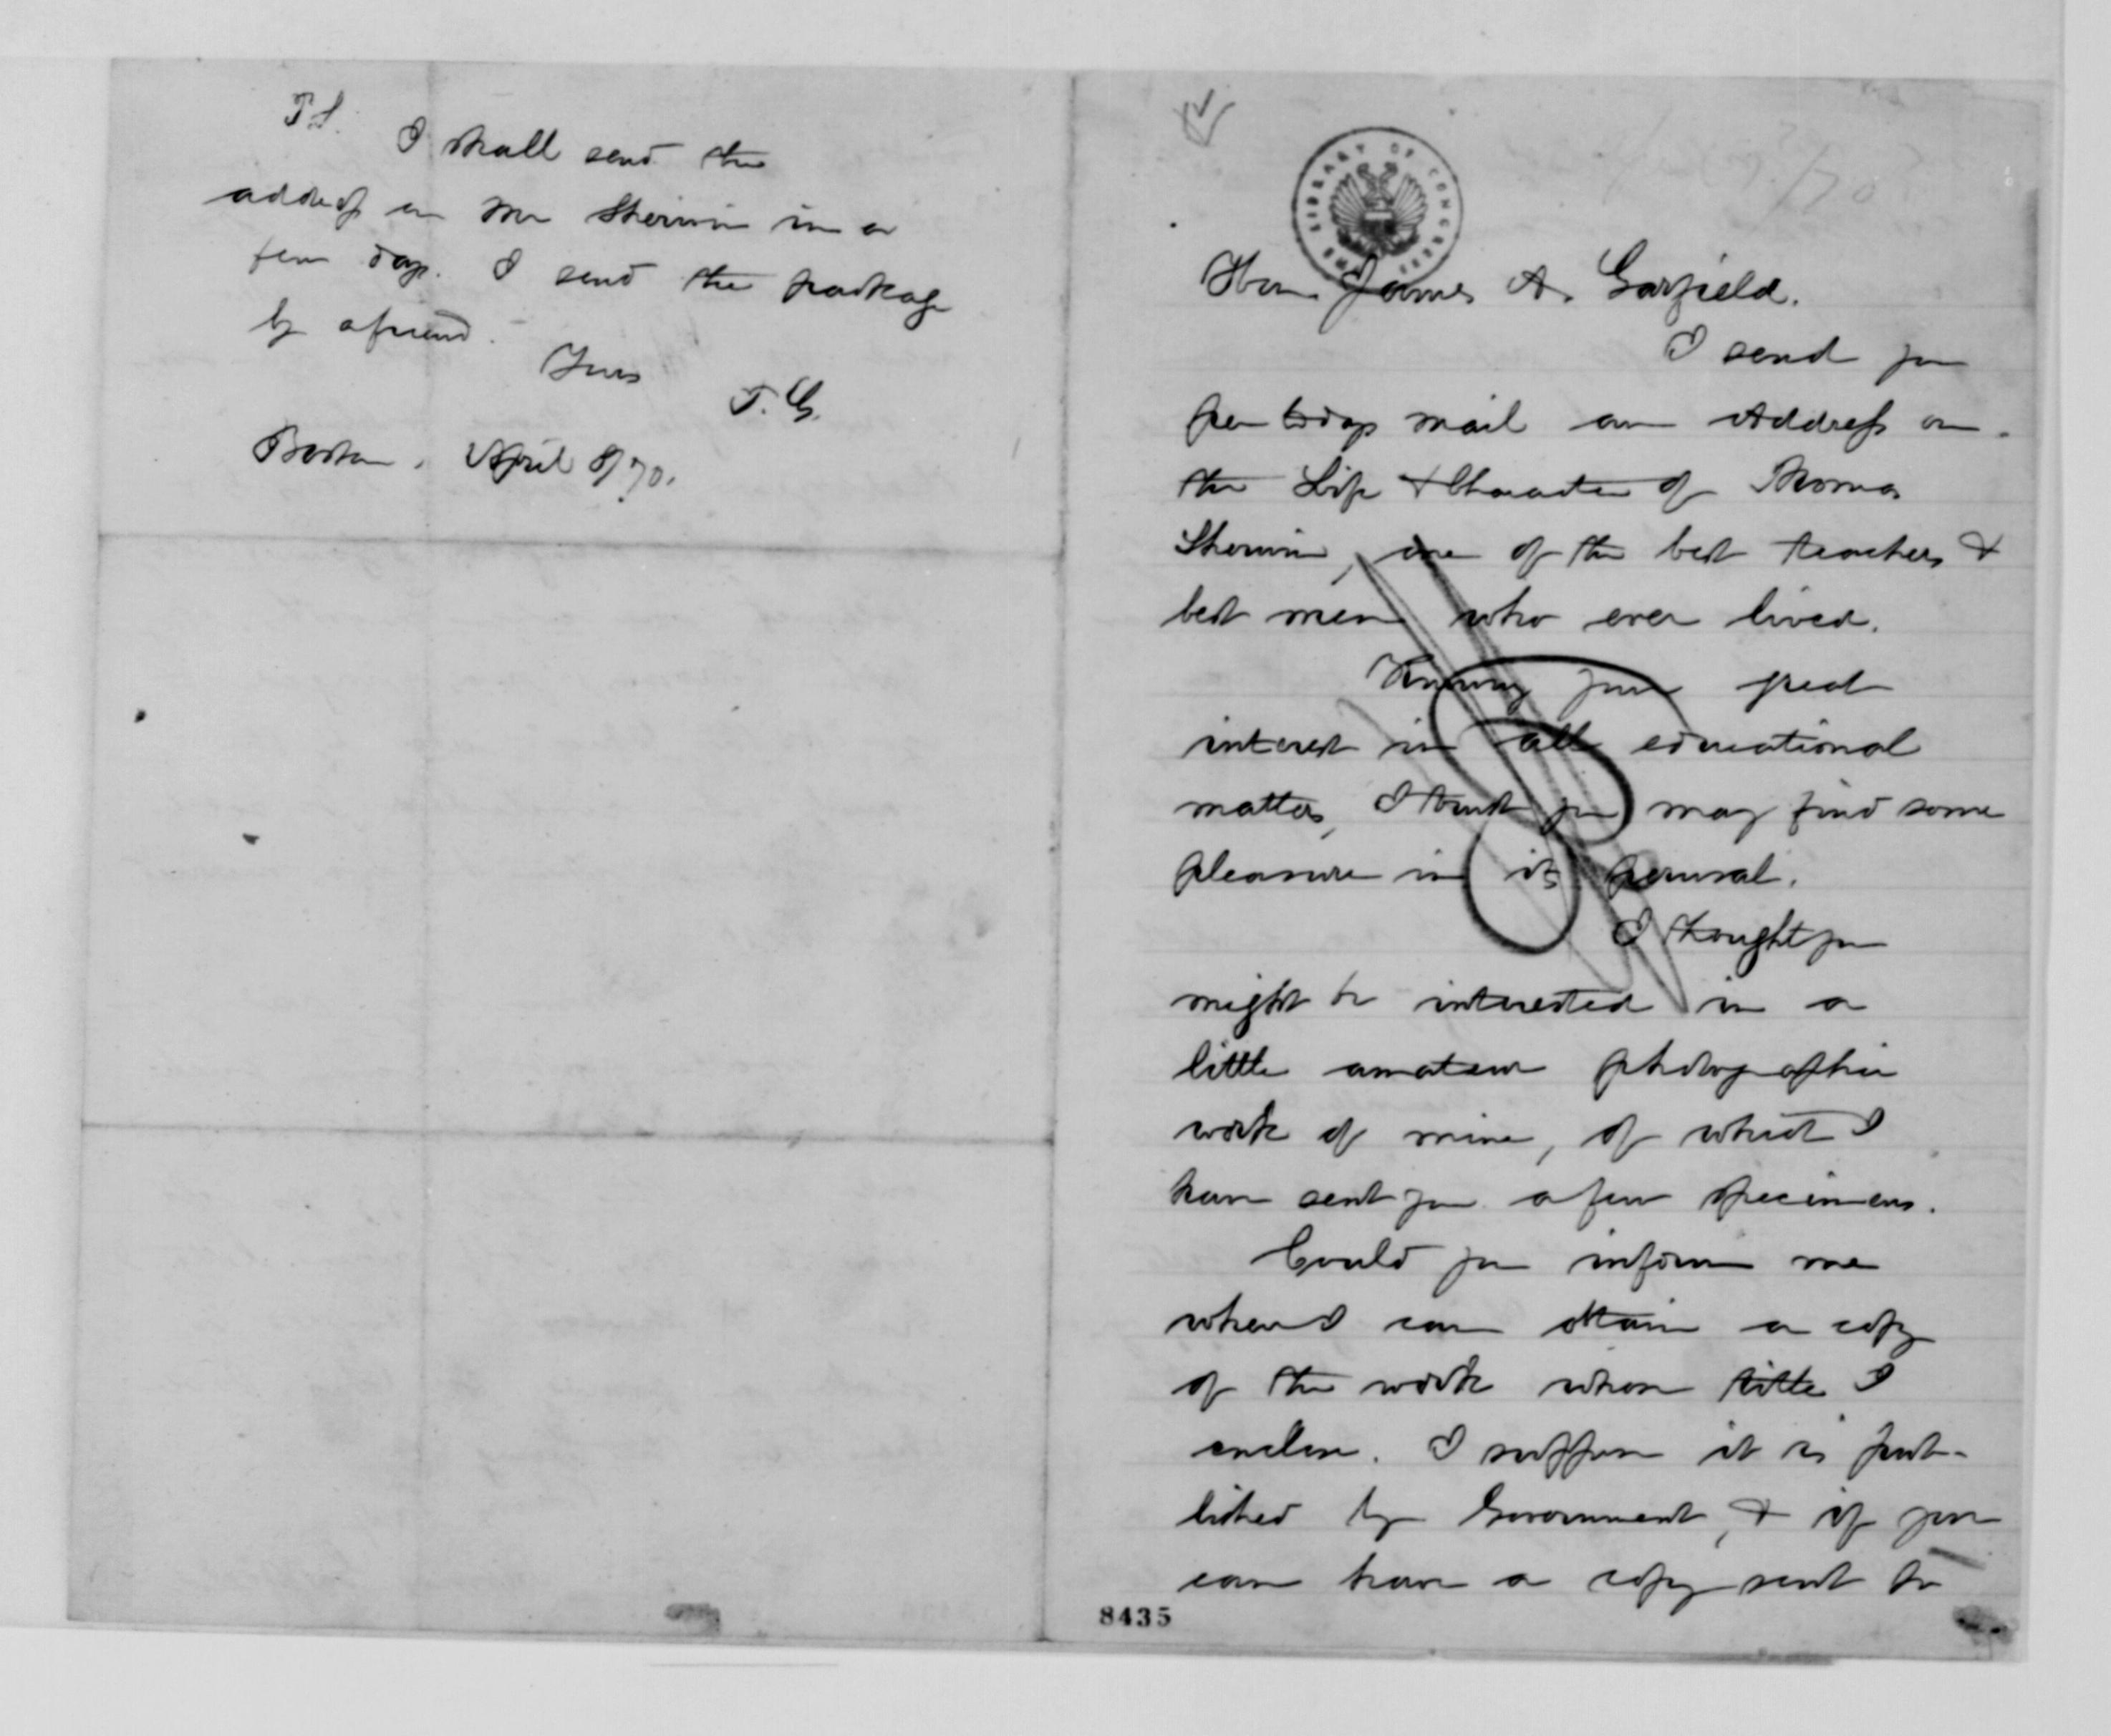 P.S. I shall send the
address on Mr Sherwin in a
few days. I send the package
by a friend.
Yours
T. G.
Boston. April 8/70.
LIBRARY OF CONGRESS
Hon. James A. Garfield.
I send you
per todays mail an Address on
the Life & Character of Thomas
Sherwin, one of the best teachers &
best men who ever lived.
Knowing your great
interest in all educational
matters, I trust you may find some
pleasure in its perusal.
I thought you
might be interested in a
little amateur photographic
work of mine, of which I
have sent you a few specimens.
Could you inform me
where I can obtain a copy
of the work whose title I
enclose. I suppose it is pub-
lished by Government, & if you
can have a copy sent to
8435